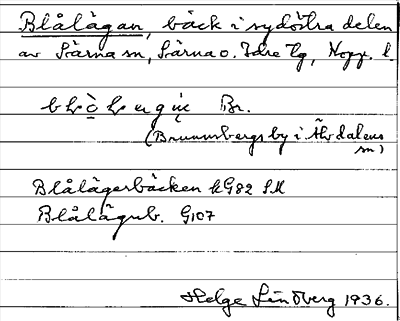 Blålägan, bäck i sydöstra delen
av Särna sn, Särna o. Idre tg, Kopp. l.
Br.
(Brunnbergs by i Älvdalens
sn)
Blålägerbäcken kG82 SK
Blålägub. G107
Helge Lindberg 1936.